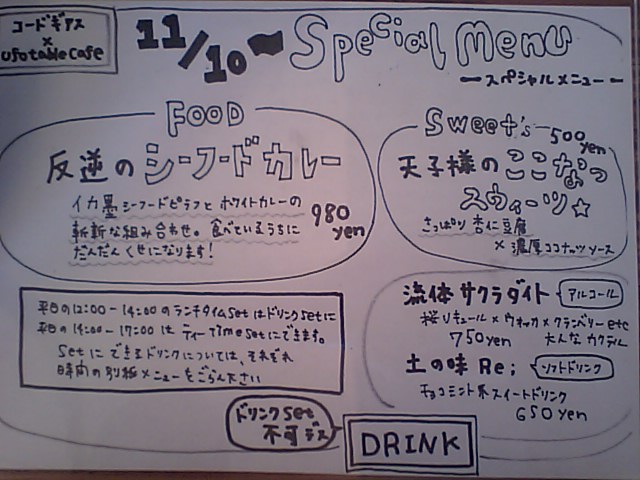 コードギアス
×
ufotable cafe
11/10〜 Special Menu
ースペシャルメニューー
FOOD
反逆のシーフードカレー
イカ墨シーフードピラフと ホワイトカレーの
斬新な組み合わせ。食べているうちに
だんだん くせになります!
980
yen
Sweet's
500
yen
天子様の ここなっ
スウィーツ☆
さっぱり 杏仁豆腐
× 濃厚ココナッツソース
平日の12:00-14:00のランチタイムsetはドリンクsetに
平日の14:00-17:00は ティーTimesetにできます。
setに できるドリンクについては、それぞれ
時間の別紙メニューをごらん下さい
流体サクラダイト アルコール
桜リキュール×ウォッカ×クランベリーetc
750yen 大人なカクテル
土の味 Re; ソフトドリンク
チョコミント系スイートドリンク
650yen
ドリンクset
不可デス
DRINK